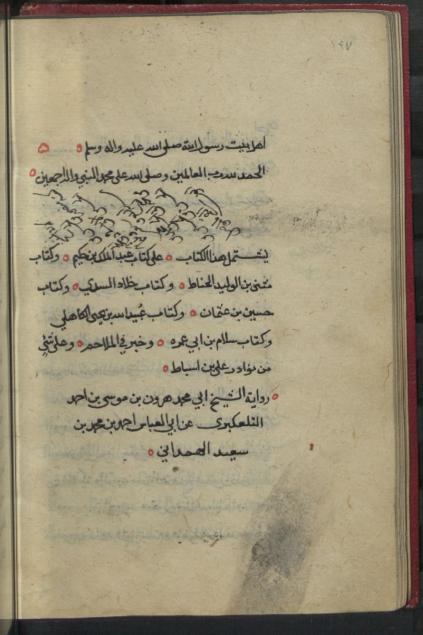 ١٩٧
اهل بيت رسول الله صلى الله عليه واله وسلم
الحمد لله رب العالمين وصلى الله على محمد النبي واله اجمعين
يشتمل هذا الكتاب على كتاب عبد الملك بن حكيم وكتاب
مثنى بن الوليد الحناط وكتاب خلاد السندي وكتاب
حسين بن عثمان وكتاب عبيد الله بن يحيى الكاهلي
وكتاب سلام بن ابي عمره وخبر في الملاحم وعلى شئ
من نوادر علي بن اسباط
رواية الشيخ ابي محمد هرون بن موسى بن احمد
التلعكبرى عن ابي العباس احمد بن محمد بن
سعيد الهمداني